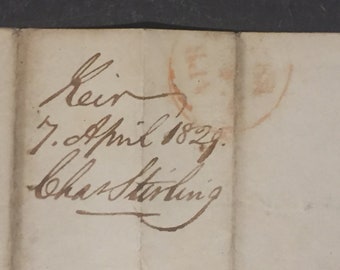 Keir,
7. April 1829.
Chas Stirling